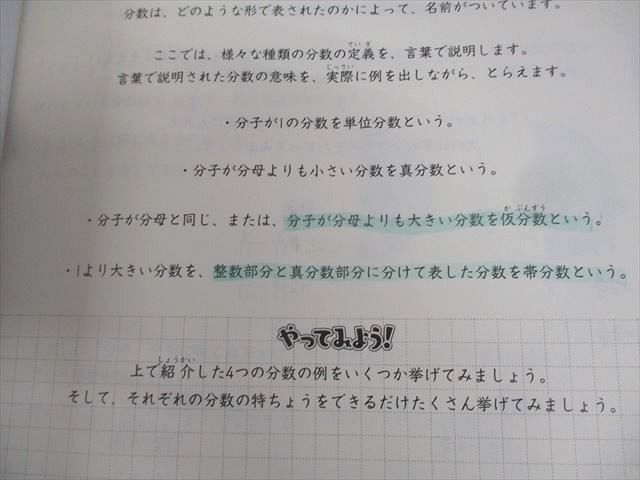 分数は、どのような形で表されたのかによって、名前がついています。
ここでは、様々な種類の分数の定義を、言葉で説明します。
言葉で説明された分数の意味を、実際に例を出しながら、とらえます。
・分子が1の分数を単位分数という。
・分子が分母よりも小さい分数を真分数という。
・分子が分母と同じ、または、分子が分母よりも大きい分数を仮分数という。
・1より大きい分数を、整数部分と真分数部分に分けて表した分数を帯分数という。
やってみよう!
上で紹介した4つの分数の例をいくつか挙げてみましょう。
そして、それぞれの分数の特ちょうをできるだけたくさん挙げてみましょう。